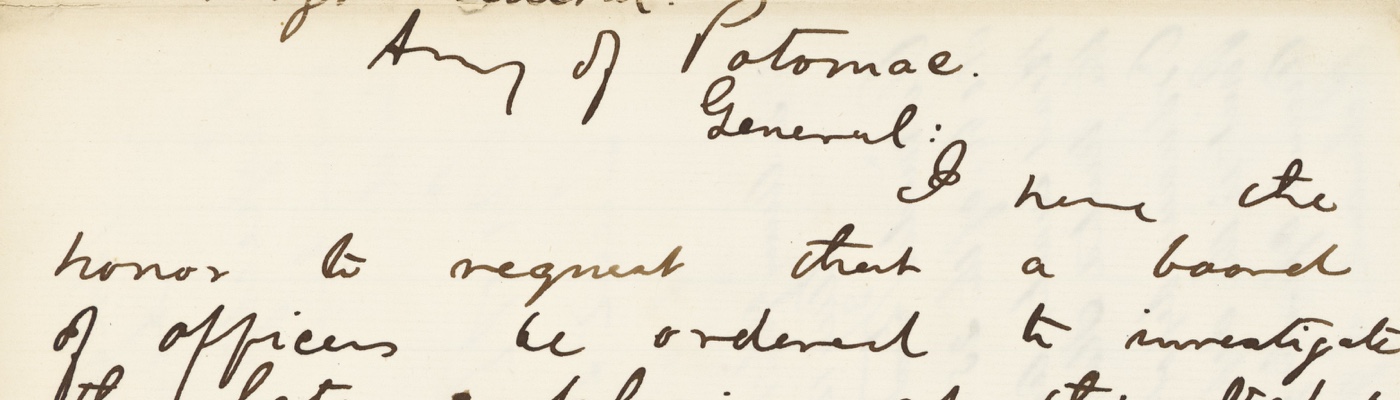 Army of Potomac.
General:
I have the
honor to request that a board
of officers be ordered to investigate
the late